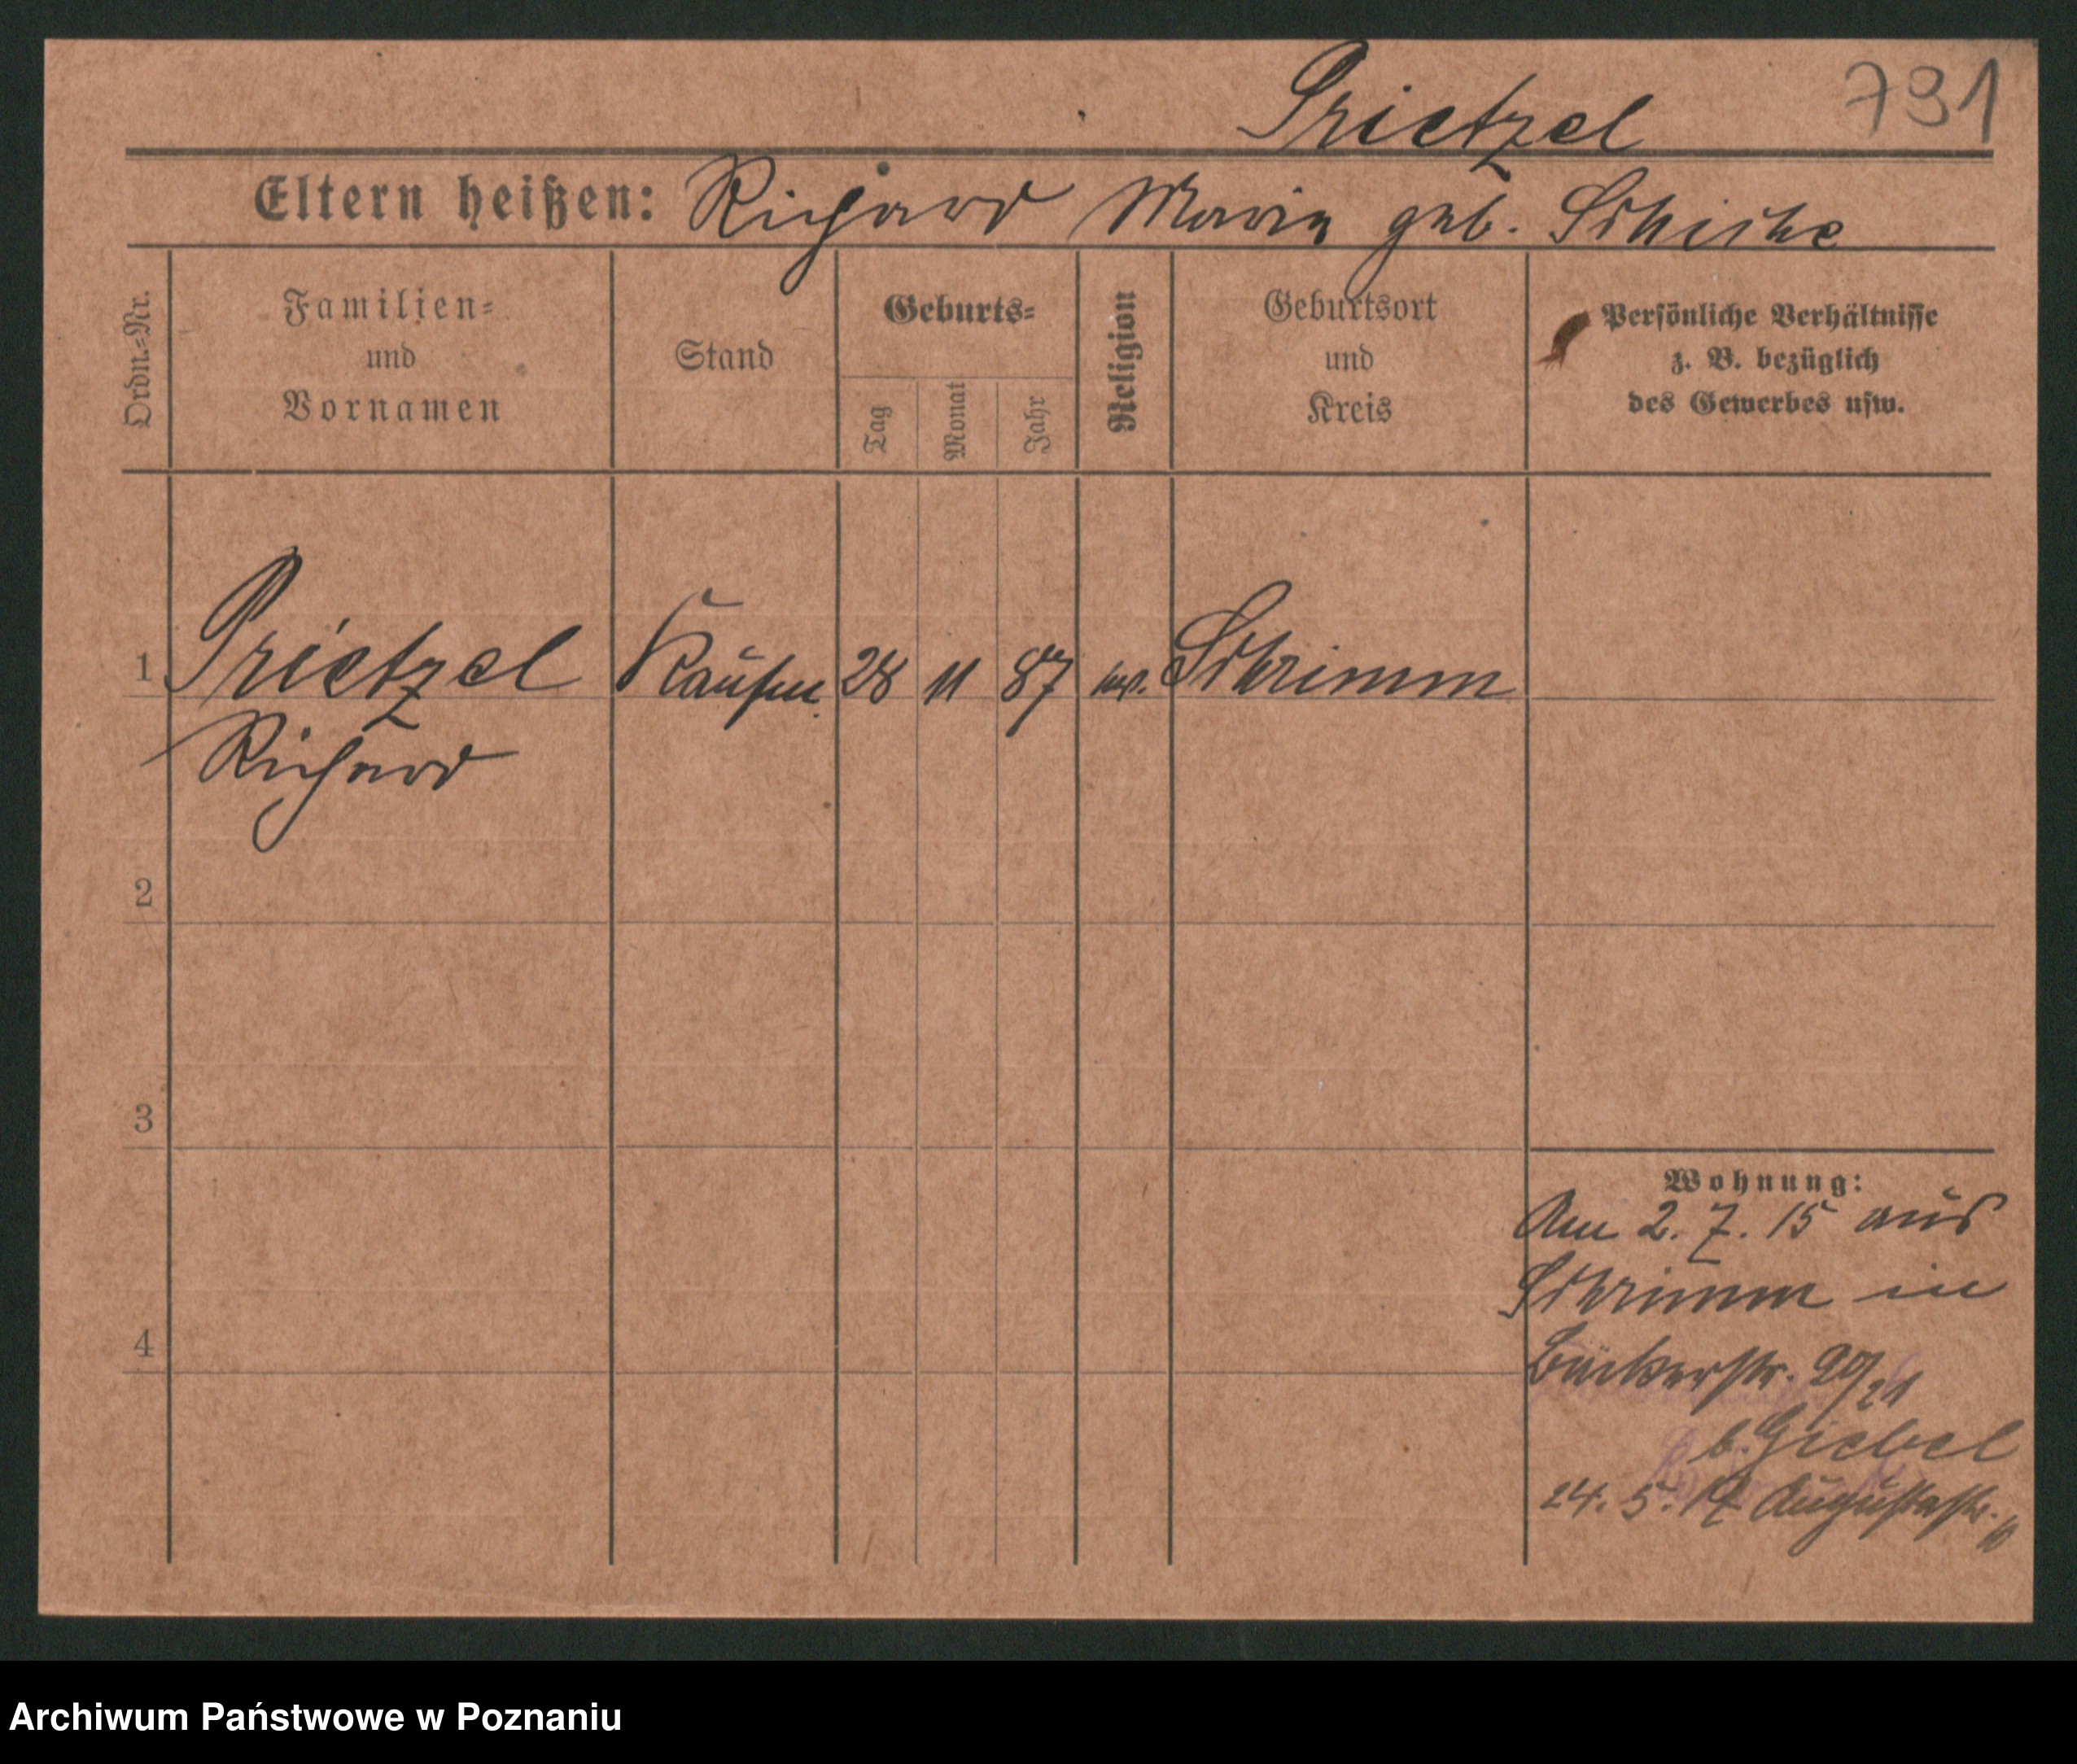 Prietzel
791
Eltern heißen: Richard Maria geb. Schicke
Ordn.=Nr.
Familien=
und
Vornamen
Stand
Geburts=
Tag
Monat
Jahr
Religion
Geburtsort
und
Kreis
Persönliche Verhältnisse
z. B. bezüglich
des Gewerbes usw.
1 Prietzel Kaufm. 28 11 87 ev. Schrimm
Richard
2
3
4
Wohnung:
Am 2. 7. 15 aus
Schrimm in
Bäckerstr. 20/21
b. Giebel
24. 5. 17 Augustastr. 10
Archiwum Państwowe w Poznaniu